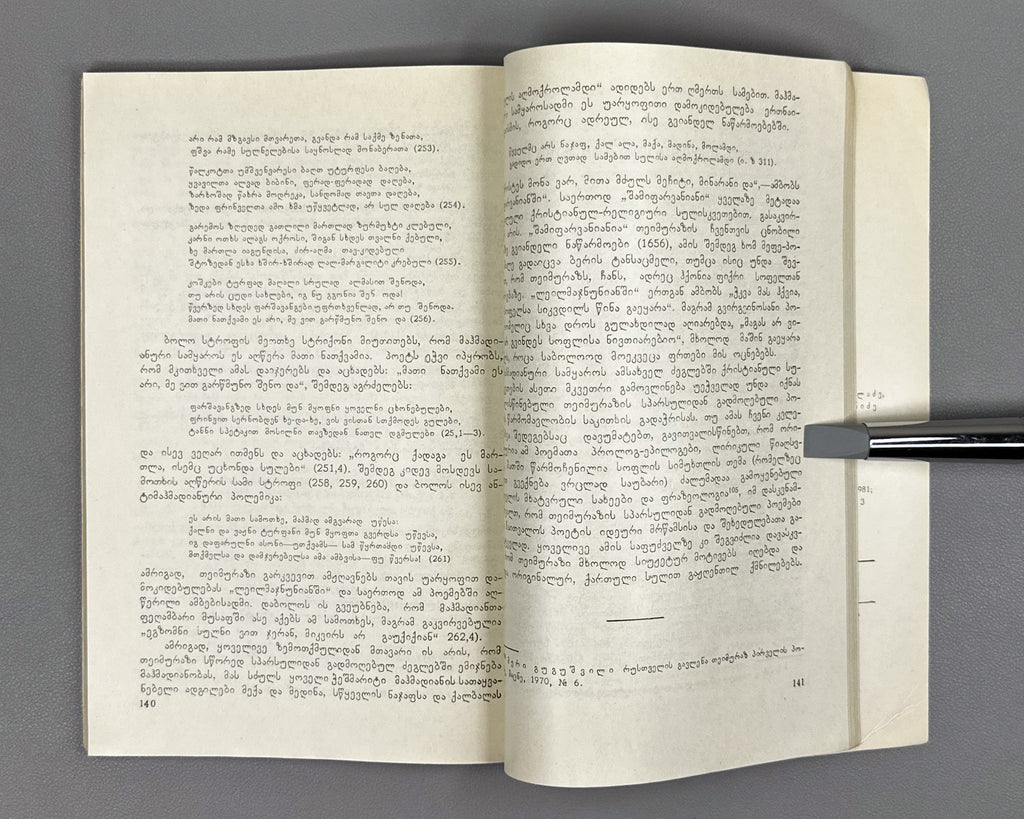 არი რამ მზგავსი მთვარეთა, გვანდა რამ საქმე ზენათა,
ფშვა რამე სულნელებისა საყნოსლად მონაბერათა (253).
წალკოტთა უმშვენვარესი ბაღთ უტურფესი ბაღება,
ყვავილთა ალვად ბიბინი, ფერად-ფერადად დაღება,
ზარხოშად წახრა მოდრეკა, სანდომად თავთა დაღება,
ზედა ფრინველთა ამო ხმა უწყვეტლად, არ სულ დაღება (254).
გარემოს ზღუდედ გათლილი მართლად ზურმუხტი კლებული,
კარნი ოთხს ალაგს ოქროსი, შიგან სხდეს თვალნი ქებული,
ხე მართლა იაგუნდისა, ძირ-აღმა თავ-კიდებული
შტოზედან ესხა ხშირ-ხშირად ლალ-მარგალიტი კრებული (255).
კოშკები ტურფად მაღალი სრულად ალმასით შენოდა,
თუ არის ცუდი სახლები, იგ ნუ გგონია შენ ოდა!
წვერზედ სხდეს ფარშავანგები უფრთხვენლად, არ თუ შენოდა.
მათი ნათქვამი ეს არი, მე ვით გარწმუნო შენო და (256).
ბოლო სტროფის მეოთხე სტრიქონი მიუთითებს, რომ მაჰმადი-
ანური სამყაროს ეს აღწერა მათი ნათქვამია. პოეტს ეჭვი იპყრობს,
რომ მკითხველი ამას დაიჯერებს და აცხადებს: „მათი ნათქვამი ეს
არი, მე ვით გარწმუნო შენო და“, შემდეგ აგრძელებს:
ფარშავანგზედ სხდეს მუნ მყოფნი ყოველნი ცხონებულები,
ფრინვით სერნობდენ ხე-და-ხე, ვის ვისთან სთქმოდეს გულები,
ტანნი სპეტაკით მოსილნი თავზედან ნათელ დგმულები (25,1—3).
და ისევ ვეღარ ითმენს და აცხადებს: „როგორც ქადაგა ეს მარ-
თლა, ისემც უცხონდა სულები“ (251,4). შემდეგ კიდევ მოსდევს სა-
მოთხის აღწერის სამი სტროფი (258, 259, 260) და ბოლოს ისევ ან-
ტიმაჰმადიანური პოლემიკა:
ეს არის მათი სამოთხე, მაჰმად ამგვარად უწესა:
ქალნი და ვაჟნი ტურფანი მუნ მყოფთა გვერდსა უწევსა,
იგ დაფარულნი ასონი—უთქვამს— სამ წყრთამდი უწევსა,
მთქმელსა და დამჯერებელსა ამა ამბვისა—ფუ წვერსა! (261)
ამრიგად, თეიმურაზი გარკვევით ამჟღავნებს თავის უარყოფით და-
მოკიდებულებას „ლეილმაჯნუნიანში“ და საერთოდ ამ პოემებში აღ-
წერილი ამბებისადმი. დაბოლოს ის გვეუბნება, რომ მაჰმადიანთა
ფეღამბარი მუსაფში ასე აქებს ამ სამოთხეს, მაგრამ გაკვირვებულია
„ეგზომნი სულნი ვით ჯერან, მიკვირს არ გაუქიქიან“ 262,4).
ამრიგად, ყოველივე ზემოთქმულიდან მთავარი ის არის, რომ
თეიმურაზი სწორედ სპარსულიდან გადმოღებულ ძეგლებში ემიჯნება
მაჰმადიანობას, მას სძულს ყოველი ჭეშმარიტი მაჰმადიანის სათაყვა-
ნებელი ადგილები მექა და მედინა, სწყევლის ნაჯაფსა და ქალბალას
140
აღმოქროლამდი“ ადიდებს ერთ ღმერთს სამებით. მაჰმა-
სამყაროსადმი ეს უარყოფითი დამოკიდებულება ერთნაი-
როგორც ადრეულ, ისე გვიანდელ ნაწარმოებებში.
წყეულმც არს ნაჯაფ, ქალ ალა, მაქა, მადინა, მოლამდი,
ვადიდო ერთ ღვთად სამებით სულისა აღმოქროლამდი (ი. ზ 311).
მონა ვარ, მითა მძულს მეჩიტი, მინარანი და“,—ამბობს
საერთოდ „შამიფარვანიანი“ ყველაზე მეტადაა
ქრისტიანულ-რელიგიური სულისკვეთებით. გასაკვირ-
არის. „შამიფარვანიანია“ თეიმურაზის ჩვენთვის ცნობილი
გვიანდელი ნაწარმოები (1656), ამის შემდეგ ხომ მეფე-პო-
გადაიცვა ბერის ტანსაცმელი, თუმცა ისიც უნდა შევ-
რომ თეიმურაზს, ჩანს, ადრეც ჰქონია ფიქრი სოფელთან
„ლეილმაჯნუნიანში“ ერთგან ამბობს „ჭკვა მას ჰქვია,
სიკვდილს წინა გაეყარა“. მაგრამ გვირგვინოსანი პო-
სხვა დროს გულახდილად აღიარებდა, „მაგას არ ვი-
გვინდეს სოფლისა ნივთიარებიო“, მხოლოდ მაშინ გაეყარა
როცა საბოლოოდ მოეკვეცა ფრთები მის ოცნებებს.
სამყაროს ამსახველ ძეგლებში ქრისტიანული სუ-
ასეთი მკვეთრი გამოვლინება უეჭველად უნდა იქნას
თეიმურაზის სპარსულიდან გადმოღებული პო-
წარმომავლობის საკითხის გადაჭრისას. თუ ამას ჩვენი კვლე-
შედეგებსაც დავუმატებთ, გავითვალისწინებთ, რომ ორი-
ამ პოემათა პროლოგ-ეპილოგები, ლირიკული წიაღსვ-
წარმოჩენილია სოფლის სიმუხთლის თემა (რომელზეც
გვექნება ვრცლად საუბარი) ძალუმადაა გამოყენებული
მხატვრული სახეები და ფრაზეოლოგია¹⁰⁵, იმ დასკვნამ-
რომ თეიმურაზის სპარსულიდან გადმოღებული პოემები
პოეტის იდეური მრწამსისა და შეხედულებათა გა-
ყოველივე ამის საფუძველზე კი შეგვიძლია დავასკვ-
თეიმურაზი მხოლოდ სიუჟეტურ მოტივებს იღებდა და
ორიგინალურ, ქართული სულით გაჟღენთილ ქმნილებებს.
გუგუშვილი რუსთველის გავლენა თეიმურაზ პირველის პო-
1970, № 6.
141
981;
3